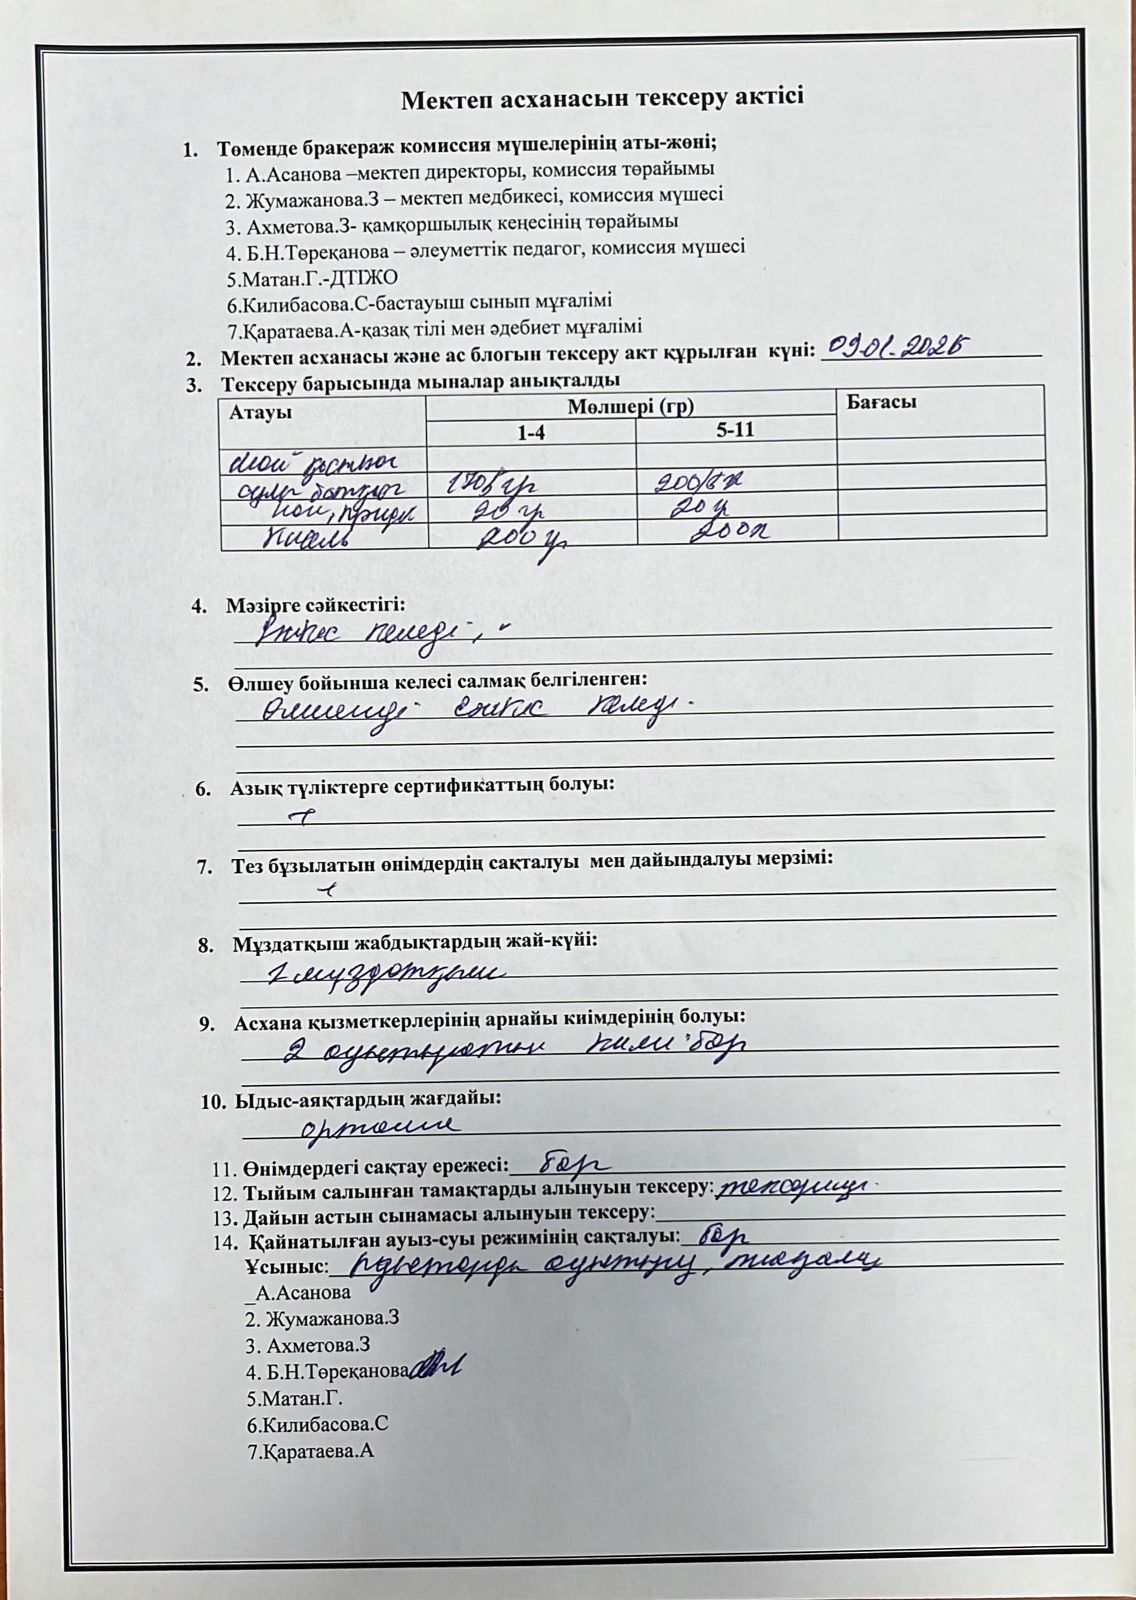 Мектеп асханасын тексеру актісі
1. Төменде бракераж комиссия мүшелерінің аты-жөні;
1. А.Асанова –мектеп директоры, комиссия төрайымы
2. Жумажанова.З – мектеп медбикесі, комиссия мүшесі
3. Ахметова.З- қамқоршылық кеңесінің төрайымы
4. Б.Н.Төреқанова – әлеуметтік педагог, комиссия мүшесі
5.Матан.Г.-ДТІЖО
6.Килибасова.С-бастауыш сынып мұғалімі
7.Қаратаева.А-қазақ тілі мен әдебиет мұғалімі
2. Мектеп асханасы және ас блогын тексеру акт құрылған күні: 09.01.2025
3. Тексеру барысында мыналар анықталды
Атауы Мөлшері (гр) Бағасы
1-4 5-11
нан, 20 гр 20 г
Кисель 200 г
4. Мәзірге сәйкестігі:
келеді,
5. Өлшеу бойынша келесі салмақ белгіленген:
Өлшенді сәйкес келеді.
6. Азық түліктерге сертификаттың болуы:
7. Тез бұзылатын өнімдердің сақталуы мен дайындалуы мерзімі:
8. Мұздатқыш жабдықтардың жай-күйі:
мұздатқыш
9. Асхана қызметкерлерінің арнайы киімдерінің болуы:
2 ауыстыратын киім бар
10. Ыдыс-аяқтардың жағдайы:
орташа
11. Өнімдердегі сақтау ережесі: бар
12. Тыйым салынған тамақтарды алынуын тексеру: тексерілді.
13. Дайын астын сынамасы алынуын тексеру:
14. Қайнатылған ауыз-суы режимінің сақталуы: бар
Ұсыныс: Ыдыстарды ауыстыру,
_А.Асанова
2. Жумажанова.З
3. Ахметова.З
4. Б.Н.Төреқанова
5.Матан.Г.
6.Килибасова.С
7.Қаратаева.А